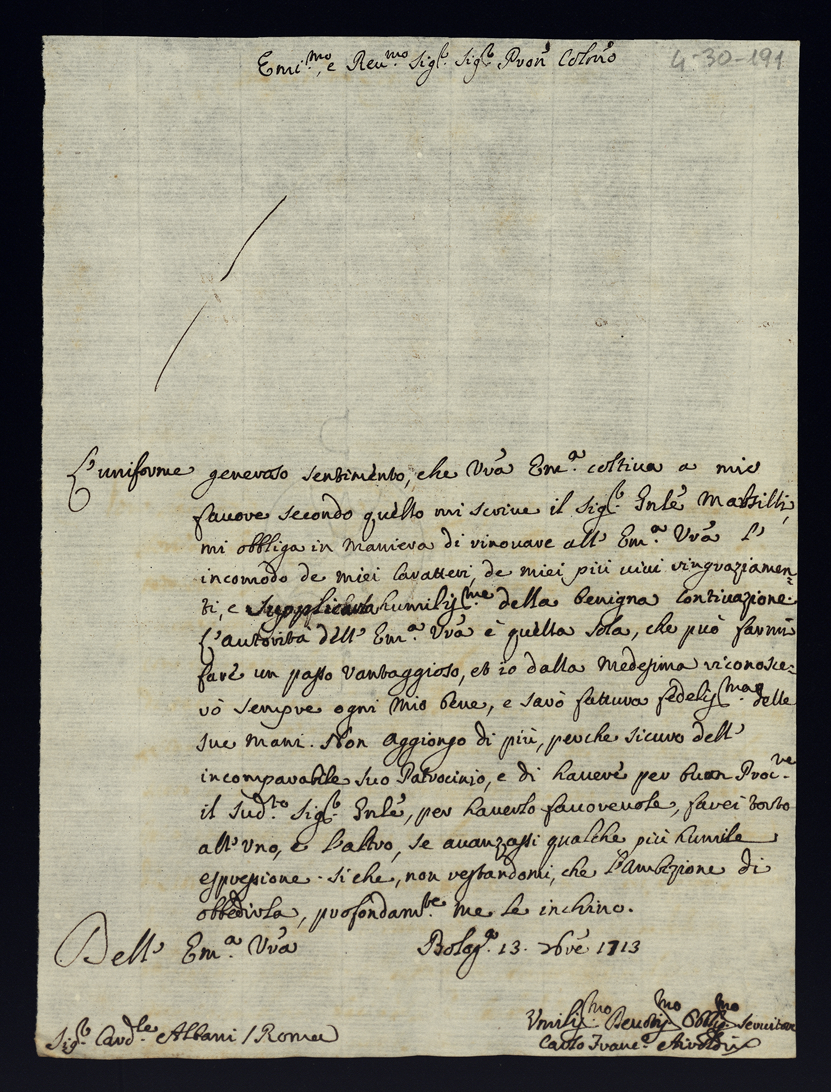 4-30-191
Emi.mo, e Reu.mo Sig.r Sig.r Pron Colmo
L'uniforme generoso sentimento, che Vra Em.a coltiua a mio
fauore secondo quello mi scriue il Sig.r Gnle Marsilli,
mi obbliga in maniera di rinouare all' Em.a Vra l'
incomodo de miei Caratteri, de miei più uiui ringraziamen-
ti, e supplicarla humiliss.me della benigna Continuazione.
L'autorità dell' Em.a Vra è quella sola, che può farmi
fare un passo vantaggioso, et io dalla medesima riconosce-
rò sempre ogni mio bene, e sarò fattura fedeliss.ma delle
sue mani. Non aggiongo di più, perche sicuro dell'
incomparabile suo Patrocinio, e di hauere per buon Proc.re
il sud.to Sig.r Gnle, per hauerlo fauoreuole, farei torto
all'Uno, e l'altro, se auanzassi qualche più humile
espressione. Si che, non restandomi, che l'Ambizione di
obbedirla, profondam.te me le inchino.
Dell' Em.a Vra Bolog.a 13. Xbre 1713
Umiliss.mo Deuotiss.mo Obblig.mo Seruitore
Sig.r Card.le Albani / Roma
Carlo Franc.o